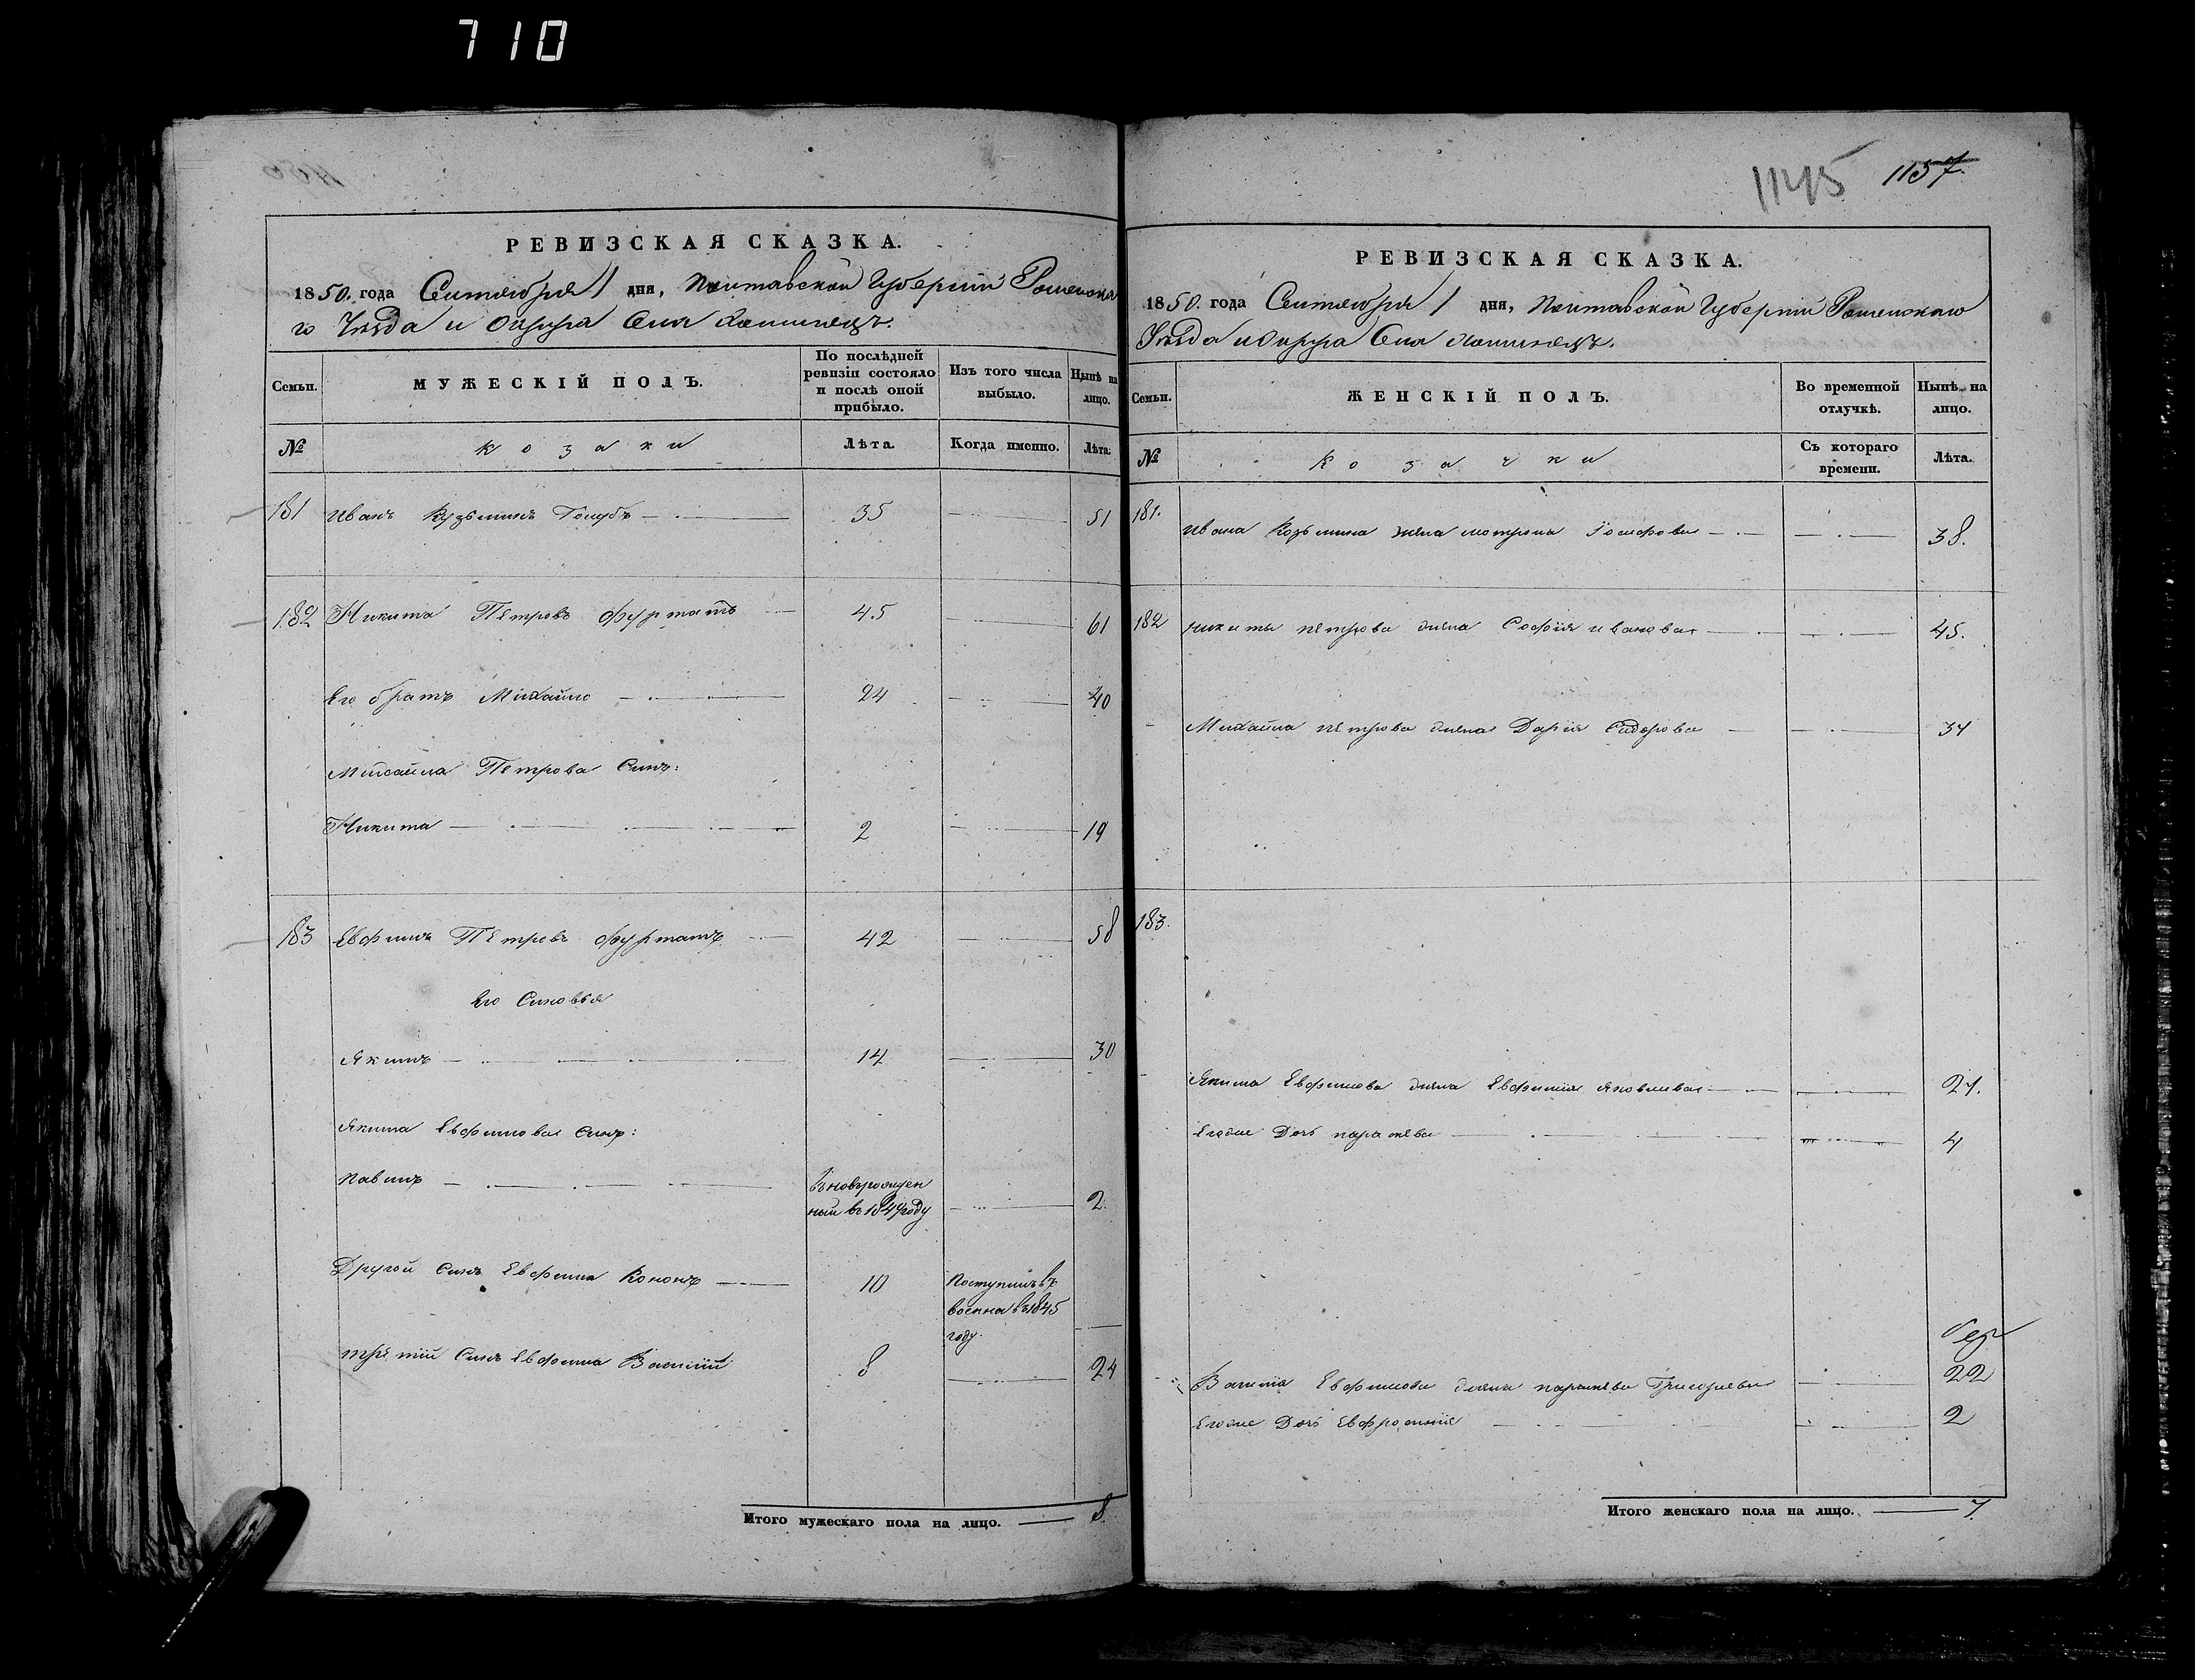 710
1145 1157.
РЕВИЗСКАЯ СКАЗКА.
1850. года Сентября 1 дня, Полтавской Губернии Роменска
го Уезда и Округа Села
Семьи.
МУЖЕСКІЙ ПОЛЪ.
По послѣдней ревизіи состояло и послѣ оной прибыло.
Изъ того числа выбыло.
Нынѣ на лицо.
№
козаки
Лѣта.
Когда именно.
Лѣта.
181 Иванъ Кузьминъ Голубъ 35 51
182 Никита Петровъ Фурматъ 45 61
Его братъ Михайло 24 40
Михайла Петрова Сынъ:
Никита 2 19
183 Евфимъ Петровъ Фурматъ 42 58
Его Сыновья
Якимъ 14 30
Якима Евфимова Сынъ:
Павилъ новорожден
ный въ 1849 году 2
Другой Сынъ Евфима Кононъ 10 Поступилъ въ
въ 1845
году.
третий Сынъ Евфима Василий 8 24
Итого мужескаго пола на лицо. 8
РЕВИЗСКАЯ СКАЗКА.
1850. года Сентября 1 дня, Полтавской Губернии Роменского
Уезда и Округа Села
Семьи.
ЖЕНСКІЙ ПОЛЪ.
Во временной отлучкѣ.
Нынѣ на лицо.
№
Козачки
Съ котораго времени.
Лѣта.
181. Ивана Козьмина жена Мотрона Іосифова 38.
182 Никиты Петрова жена София Иванова 45.
Михайла Петрова жена Дария Сидорова 34
183.
Якима Евфимова жена Евфимия Яковлева 27.
Его же Дочь Параскева 4
Василя Евфимова жена Параскева Григориева 22
Его же Дочь Евфросиния 2
Итого женскаго пола на лицо. 7